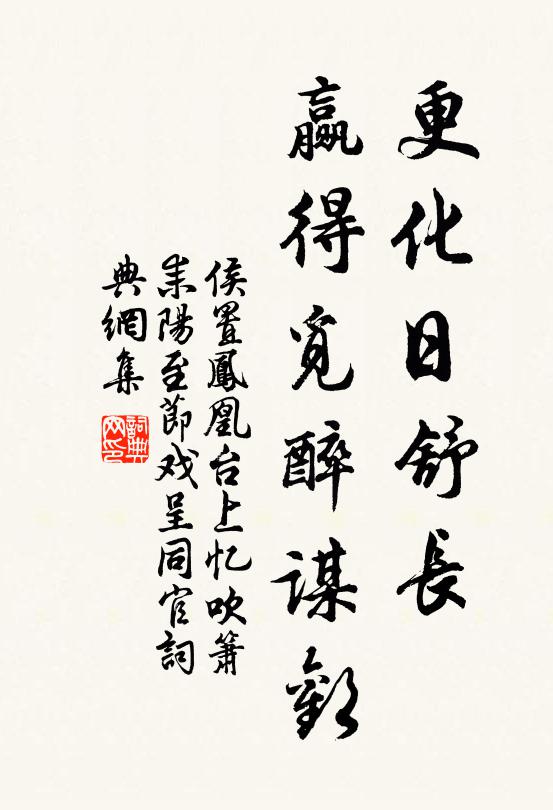 更化日舒長
贏得覓醉謀歡
侯置鳳凰台上忆吹簫
耒陽至節戏呈同官詞
典網集
詞典網印